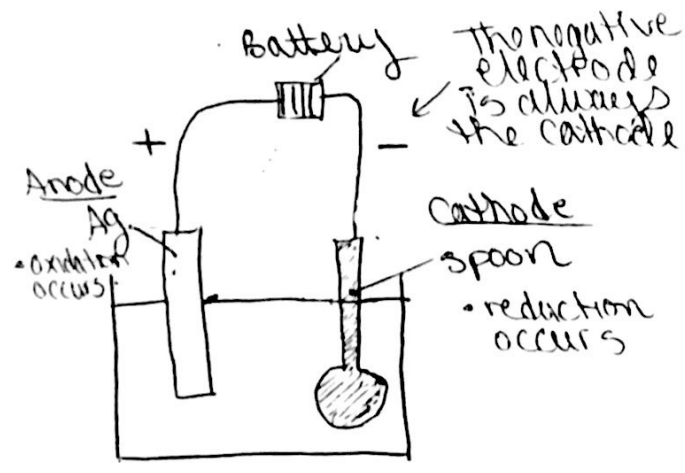 Battery
The negative
electrode
is always
the cathode
+
−
Anode
Ag
• oxidation
occurs
Cathode
spoon
• reduction
occurs